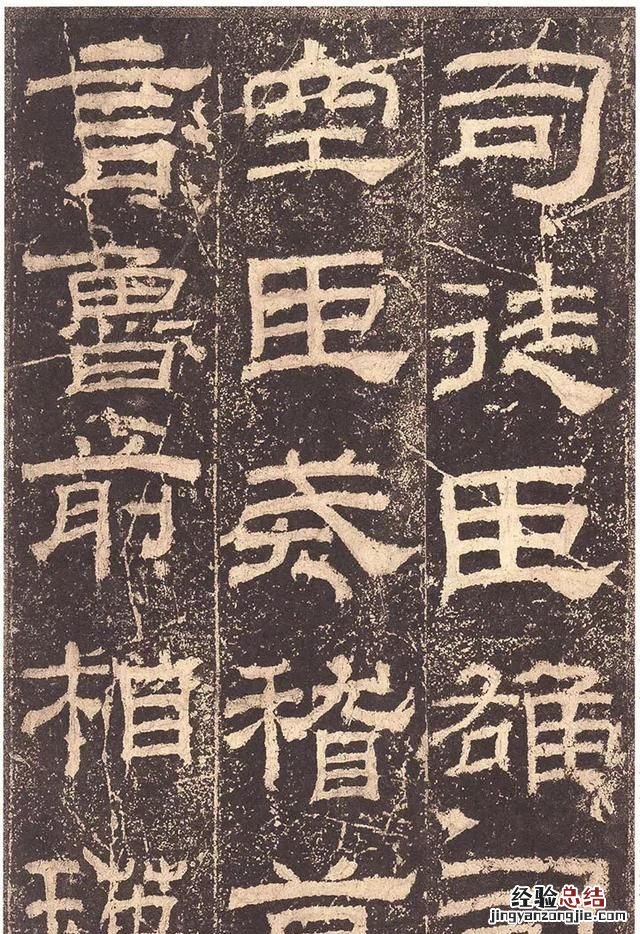 司徒臣雄司
空臣戒稽首
言魯前相瑛
经验总结
jingyanzongjie.com